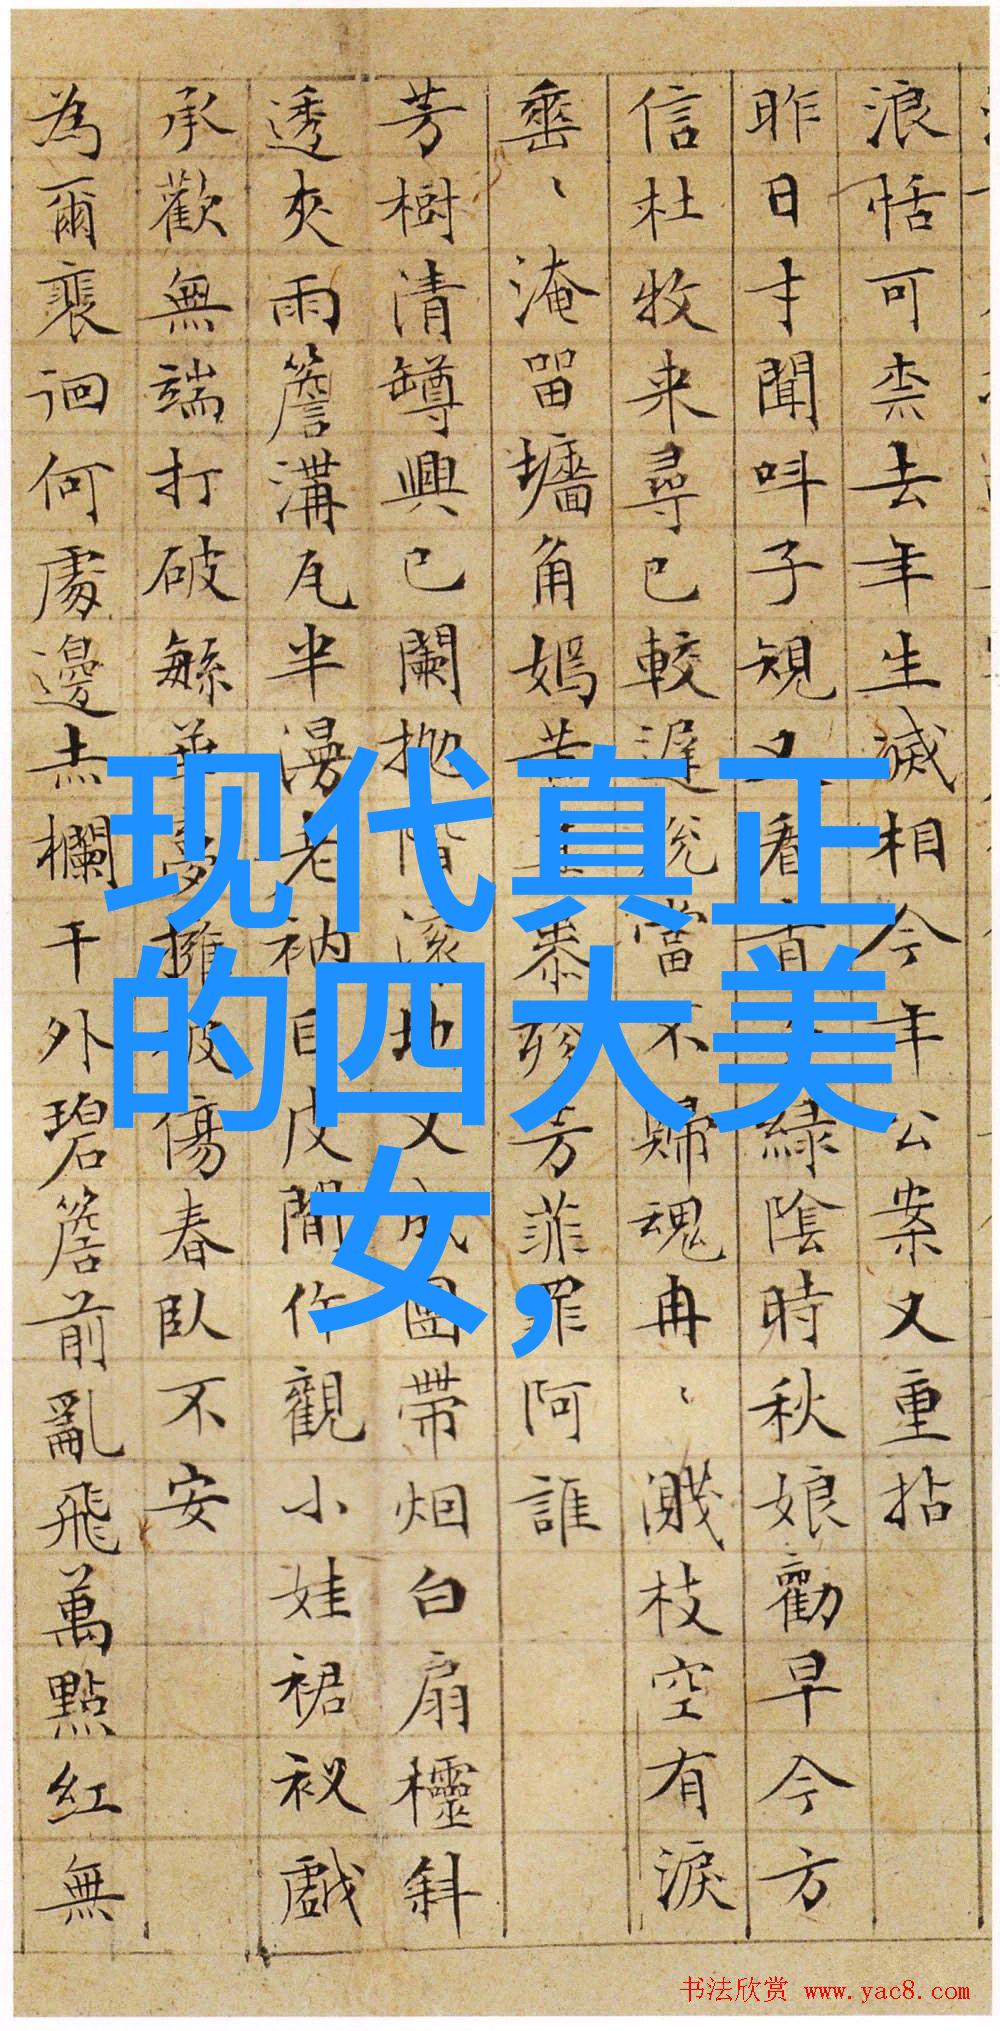 浪恬可柰去年生滅相今年公案又重拈
昨日才聞呌子規又看青綠陰時秋娘勸早今方
信杜牧来尋已較遲縱當不歸魂冉、濺枝空有淚
淹留墻角嫣芳菲罪阿誰
芳樹清罇興已闌拋階滚地又成團帶烟白扇櫺斜
透夾雨簷溝瓦半漫老衲自皮閒作觀小娃裙衩戲
承歡無端打破繁華夢擁被傷春臥不安
為爾裵徊何處邊赤欄干外碧簷前亂飛萬點紅無
现代真正
的四大美
女,
书法欣赏 www.yac8.com